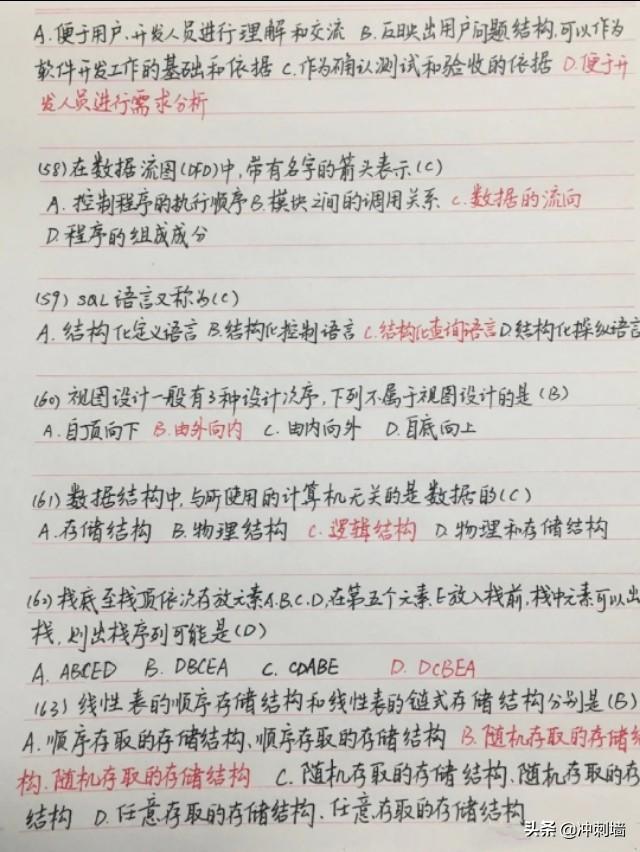 A.便于用户、开发人员进行理解和交流 B.反映出用户问题结构,可以作为
软件开发工作的基础和依据 C.作为确认测试和验收的依据 D.便于开
发人员进行需求分析
(58)在数据流图(DFD)中,带有名字的箭头表示(C)
A.控制程序的执行顺序 B.模块之间的调用关系 C.数据的流向
D.程序的组成成分
(59)SQL语言又称为(C)
A.结构化定义语言 B.结构化控制语言 C.结构化查询语言 D.结构化操纵语言
(60)视图设计一般有3种设计次序,下列不属于视图设计的是(B)
A.自顶向下 B.由外向内 C.由内向外 D.自底向上
(61)数据结构中,与所使用的计算机无关的是数据的(C)
A.存储结构 B.物理结构 C.逻辑结构 D.物理和存储结构
(62)栈底至栈顶依次存放元素A.B.C.D,在第五个元素E放入栈前,栈中元素可以出
栈,则出栈序列可能是(D)
A. ABCED B. DBCEA C. CDABE D. DCBEA
(63)线性表的顺序存储结构和线性表的链式存储结构分别是(B)
A.顺序存取的存储结构、顺序存取的存储结构 B.随机存取的存储结
构、随机存取的存储结构 C.随机存取的存储结构、随机存取的存
结构 D.任意存取的存储结构、任意存取的存储结构
头条 @冲刺墙